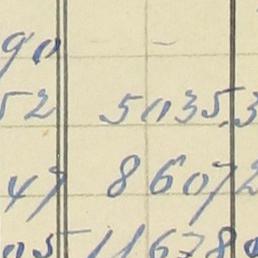 90 -
52 5035,3
47 86072
05 11678